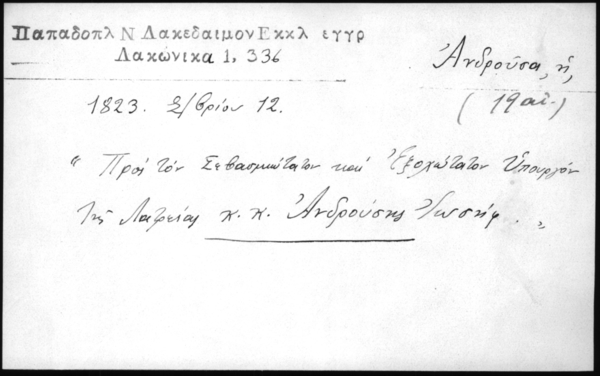 Παπαδοπλ Ν Λακεδαιμον Εκκλ εγγρ
Λακώνικα 1, 336
Ἀνδροῦσα, ἡ,
(19 αἰ.)
1823. Σ/βρίου 12.
" Πρὸς τὸν Σεβασμιώτατον καὶ Ἐξοχώτατον Ὑπουργὸν
τῆς Λατρείας κ. κ. Ἀνδρούσης Ἰωσήφ. "